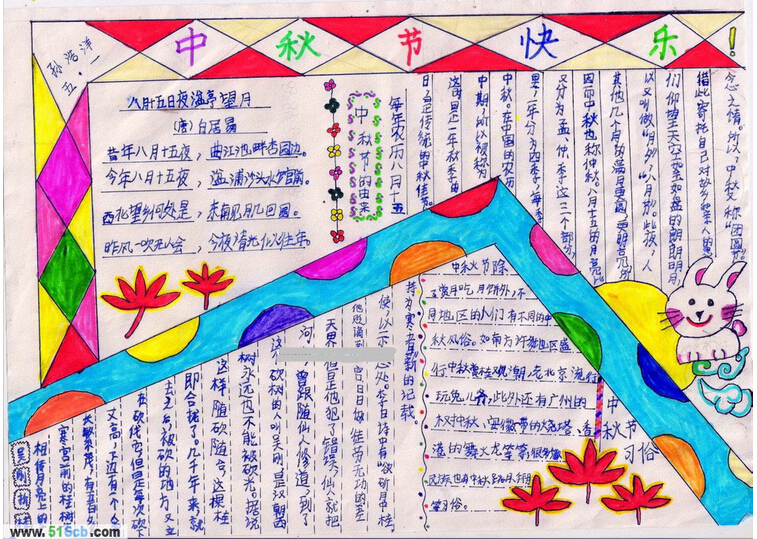 中秋节快乐!
孙浩洋
五.一
八月十五日夜湓亭望月
(唐)白居易
昔年八月十五夜，曲江池畔杏园边。
今年八月十五夜，湓浦沙头水馆前。
西北望乡何处是，东南见月几回圆。
昨风一吹无人会，今夜清光似往年。
中秋节的由来
每年农历八月十五
日，是传统的中秋佳节。
这时是一年秋季的
中期，所以被称为
中秋。在中国的农历
里，一年分为四季，每季
又分为孟、仲、季这三个部分，
因而中秋也称仲秋。八月十五的月亮比
其他几个月的满月更圆，更明亮，所
以又叫做"月夕"，"八月节"。此夜，人
们仰望天空如玉如盘的朗朗明月，
借此寄托自己对故乡和亲人的思
念之情。所以，中秋又称"团圆节"。
吴刚折桂
相传月亮上的
广寒宫前的桂树
丈高，下边有一个人
在砍伐它，但是每次砍下
去之后，被砍的地方又立
即合拢了。几千年来，就
这样随砍随合，这棵桂
树永远也不能被砍光。据说
这个砍树的人叫吴刚，是汉朝西
河人，曾跟随仙人修道，到了
天界，但是他犯了错误，仙人就把
他贬谪到
宫，日日做这种徒劳无功的苦
差
李白诗中有"欲斫月中桂，
持为寒者薪"的记载。
中秋节习俗
中秋节除
了赏月吃月饼外，不
同地区的人们有不同的中
秋风俗。如南方许多地区盛
行中秋赏桂观潮，老北京流行
玩兔儿爷，此外还有广州的
树中秋、安徽的大宝塔、
造的舞火龙等等。很多少数
民族也有中秋
赏月俗。
www.51Scb.com